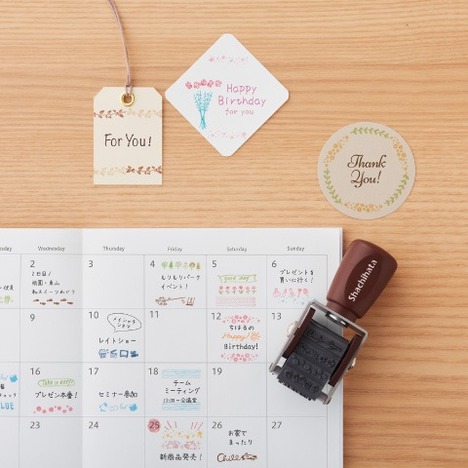 For You!
Happy
Birthday
for you
Thank
You!
Shachihata
Wednesday
Thursday
Friday
Saturday
Sunday
2
3
4
5
6
2日目♪
もりもりパーク
イベント!
good day
プレゼントを
買いに行く!
9
10
11
12
13
レイトショー
ちはるの
Happy!
Birthday!
16
17
18
19
20
Take it easy!
プレゼン本番!
セミナー参加
チーム
ミーティング
BLUE
23
24
25
26
27
新商品発売!
お家で
まったり
Chill